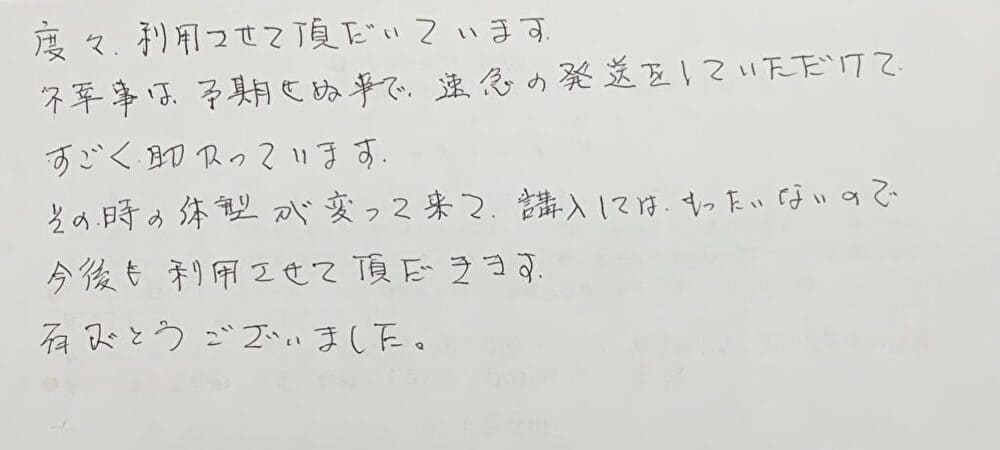 度々、利用させて頂だいています。
不幸事は、予期せぬ事で、速急の発送をしていただけて、
すごく助かっています。
その時の体型が変って来て、講入しては、もったいないので
今後も利用させて頂だきます。
有がとうございました。